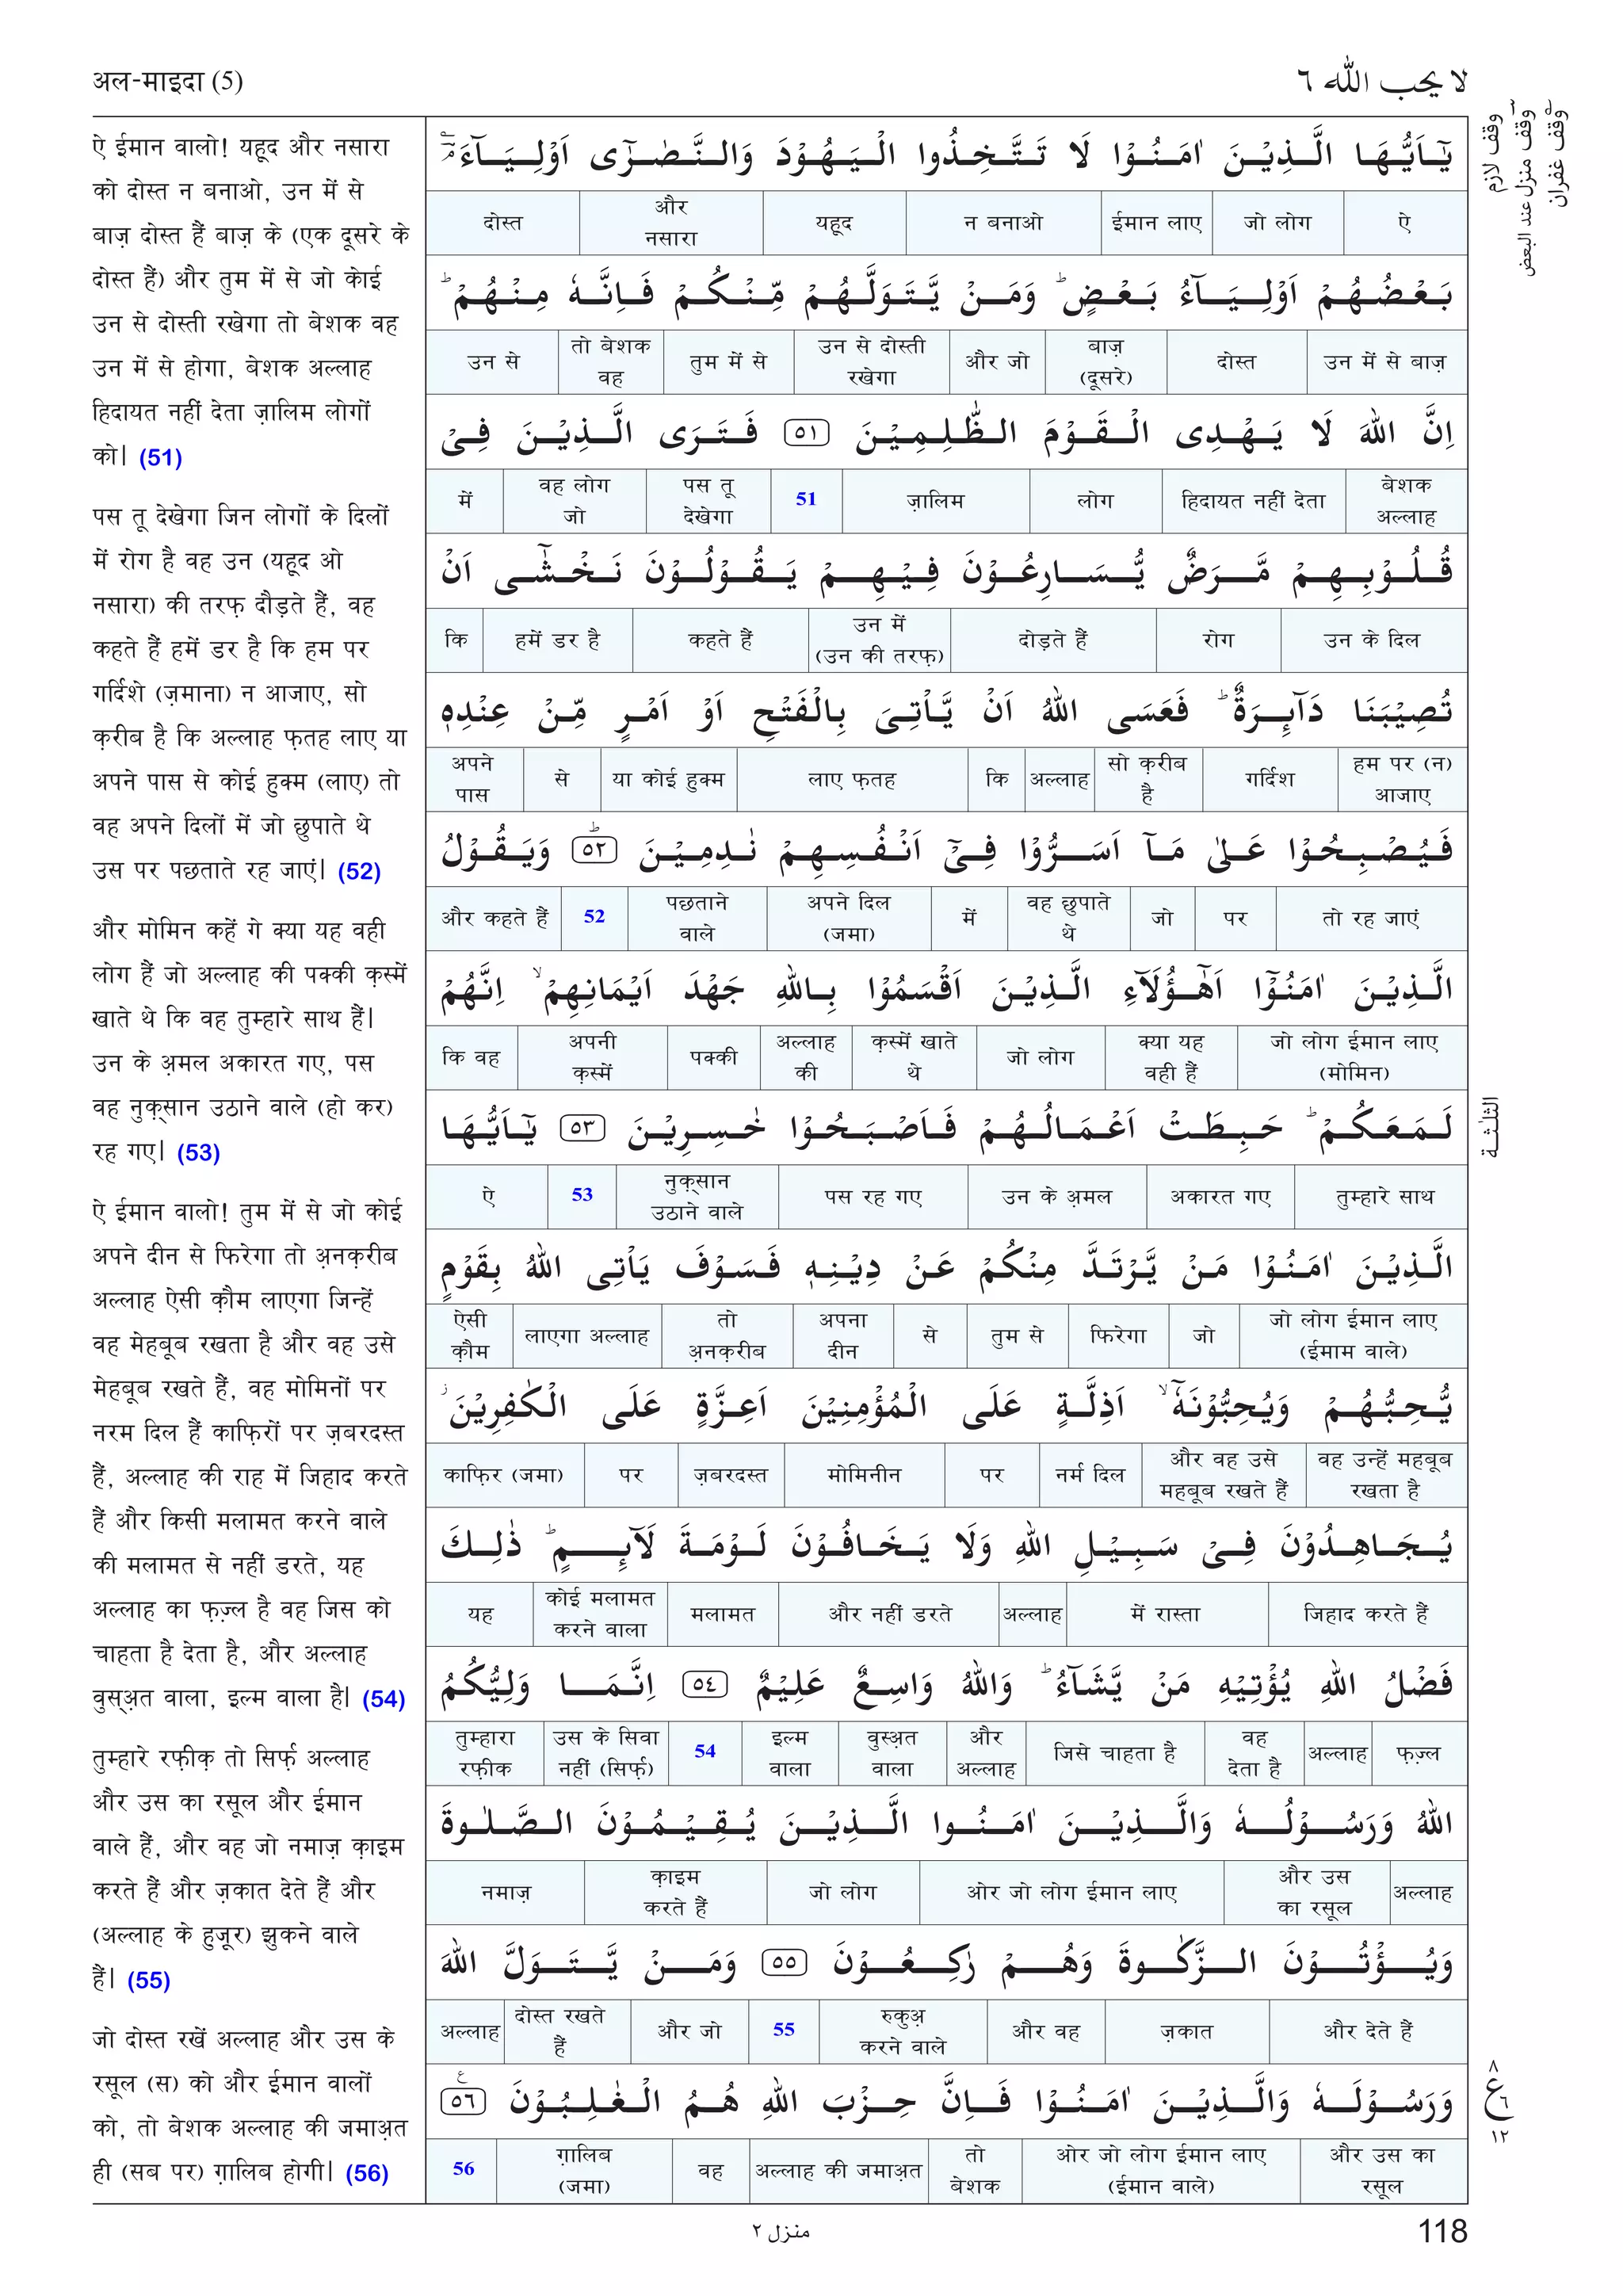 अल-माइदा (5)
لا يحب الله ٦
ऐ ईमान वालो! यहूद और नसारा
को दोस्त न बनाओ, उन में से
बाज़ दोस्त हैं बाज़ के (एक दूसरे के
दोस्त हैं) और तुम में से जो केाई
उन से दोस्ती रखेगा तो बेशक वह
उन में से होगा, बेशक अल्लाह
हिदायत नहीं देता ज़ालिम लोगों
को| (51)
पस तू देखेगा जिन लोगों के दिलों
में रोग है वह उन (यहूद ओ
नसारा) की तरफ़ दौड़ते हैं, वह
कहते हैं हमें डर है कि हम पर
गर्दिशे (ज़माना) न आजाए, सो
क़रीब है कि अल्लाह फ़तह लाए या
अपने पास से कोई हुक्म (लाए) तो
वह अपने दिलों में जो छुपाते थे
उस पर पछताते रह जाएं| (52)
और मोमिन कहें गे क्या यह वही
लोग हैं जो अल्लाह की पक्की क़स्में
खाते थे कि वह तुम्हारे साथ हैं|
उन के अ़मल अकारत गए, पस
वह नुक़्सान उठाने वाले (हो कर)
रह गए| (53)
ऐ ईमान वालो! तुम में से जो कोई
अपने दीन से फिरेगा तो अ़नक़रीब
अल्लाह ऐसी क़ौम लाएगा जिन्हें
वह मेहबूब रखता है और वह उसे
मेहबूब रखते हैं, वह मोमिनों पर
नरम दिल हैं काफ़िरों पर ज़बरदस्त
हैं, अल्लाह की राह में जिहाद करते
हैं और किसी मलामत करने वाले
की मलामत से नहीं डरते, यह
अल्लाह का फ़ज़्ल है वह जिस को
चाहता है देता है, और अल्लाह
वुस्अ़त वाला, इल्म वाला है| (54)
तुम्हारे रफ़ीक़ तो सिर्फ़ अल्लाह
और उस का रसूल और ईमान
वाले हैं, और वह जो नमाज़ क़ाइम
करते हैं और ज़कात देते हैं और
(अल्लाह के हुजूर) झुकने वाले
हैं| (55)
जो दोस्त रखें अल्लाह और उस के
रसूल (स) को और ईमान वालों
को, तो बेशक अल्लाह की जमाअ़त
ही (सब पर) ग़ालिब होगी| (56)
يٰۤاَيُّهَا الَّذِيْنَ اٰمَنُوْا لَا تَتَّخِذُوا الْيَهُوْدَ وَالنَّصٰرٰۤى اَوْلِيَآءَ
ऐ जो लोग ईमान लाए न बनाओ यहूद और नसारा दोस्त
بَعْضُهُمْ اَوْلِيَآءُ بَعْضٍ ؕ وَمَنْ يَّتَوَلَّهُمْ مِّنْكُمْ فَاِنَّهٗ مِنْهُمْ ؕ
उन में से बाज़ दोस्त बाज़ (दूसरे) और जो उन से दोस्ती रखेगा तुम में से तो बेशक वह उन से
اِنَّ اللهَ لَا يَهْدِى الْقَوْمَ الظّٰلِمِيْنَ ٥١ فَتَرَى الَّذِيْنَ فِىْ
बेशक अल्लाह हिदायत नहीं देता लोग ज़ालिम 51 पस तू देखेगा वह लोग जो में
قُلُوْبِهِمْ مَّرَضٌ يُّسَارِعُوْنَ فِيْهِمْ يَقُوْلُوْنَ نَخْشٰٓى اَنْ
उन के दिल रोग दोड़ते हैं उन में (उन की तरफ़) कहते हैं हमें डर है कि
تُصِيْبَنَا دَآئِرَةٌ ؕ فَعَسَى اللهُ اَنْ يَّاْتِىَ بِالْفَتْحِ اَوْ اَمْرٍ مِّنْ عِنْدِهٖ
हम पर (न) आजाए गर्दिश सो क़रीब है अल्लाह कि लाए फ़तह या कोई हुक्म से अपने पास
فَيُصْبِحُوْا عَلٰى مَآ اَسَرُّوْا فِىْٓ اَنْفُسِهِمْ نٰدِمِيْنَ ٥٢ ؕ وَيَقُوْلُ
तो रह जाएं पर जो वह छुपाते थे में अपने दिल (जमा) पछताने वाले 52 और कहते हैं
الَّذِيْنَ اٰمَنُوْٓا اَهٰٓؤُلَآءِ الَّذِيْنَ اَقْسَمُوْا بِاللهِ جَهْدَ اَيْمَانِهِمْ ۙ اِنَّهُمْ
जो लोग ईमान लाए (मोमिन) क्या यह वही हैं जो लोग क़स्में खाते थे अल्लाह की पक्की अपनी क़स्में कि वह
لَمَعَكُمْ ؕ حَبِطَتْ اَعْمَالُهُمْ فَاَصْبَحُوْا خٰسِرِيْنَ ٥٣ يٰۤاَيُّهَا
तुम्हारे साथ अकारत गए उन के अ़मल पस रह गए नुक़्सान उठाने वाले 53 ऐ
الَّذِيْنَ اٰمَنُوْا مَنْ يَّرْتَدَّ مِنْكُمْ عَنْ دِيْنِهٖ فَسَوْفَ يَاْتِى اللهُ بِقَوْمٍ
जो लोग ईमान लाए (ईमाम वाले) जो फिरेगा तुम से से अपना दीन तो अ़नक़रीब लाएगा अल्लाह ऐसी क़ौम
يُّحِبُّهُمْ وَيُحِبُّوْنَهٗٓ ۙ اَذِلَّةٍ عَلَى الْمُؤْمِنِيْنَ اَعِزَّةٍ عَلَى الْكٰفِرِيْنَ ؗ
वह उन्हें महबूब रखता है और वह उसे महबूब रखते हैं नर्म दिल पर मोमिनीन ज़बरदस्त पर काफ़िर (जमा)
يُجَاهِدُوْنَ فِىْ سَبِيْلِ اللهِ وَلَا يَخَافُوْنَ لَوْمَةَ لَآئِمٍ ؕ ذٰلِكَ
जिहाद करते हैं में रास्ता अल्लाह और नहीं डरते मलामत कोई मलामत करने वाला यह
فَضْلُ اللهِ يُؤْتِيْهِ مَنْ يَّشَآءُ ؕ وَاللهُ وَاسِعٌ عَلِيْمٌ ٥٤ اِنَّمَا وَلِيُّكُمُ
फ़ज़्ल अल्लाह वह देता है जिसे चाहता है और अल्लाह वुस्अ़त वाला इल्म वाला 54 उस के सिवा नहीं (सिर्फ़) तुम्हारा रफ़ीक
اللهُ وَرَسُوْلُهٗ وَالَّذِيْنَ اٰمَنُوا الَّذِيْنَ يُقِيْمُوْنَ الصَّلٰوةَ
अल्लाह और उस का रसूल ओर जो लोग ईमान लाए जो लोग क़ाइम करते हैं नमाज़
وَيُؤْتُوْنَ الزَّكٰوةَ وَهُمْ رٰكِعُوْنَ ٥٥ وَمَنْ يَّتَوَلَّ اللهَ
और देते हैं ज़कात और वह रुकुअ़ करने वाले 55 और जो दोस्त रखते हैं अल्लाह
وَرَسُوْلَهٗ وَالَّذِيْنَ اٰمَنُوْا فَاِنَّ حِزْبَ اللهِ هُمُ الْغٰلِبُوْنَ ٥٦
और उस का रसूल ओर जो लोग ईमान लाए (ईमान वाले) तो बेशक अल्लाह की जमाअ़त वह ग़ालिब (जमा) 56
وقف لازم
وقف منزل عند البعض
وقف غفران
الثلثة
٨
ع
٦
١٢
منزل ٢
118